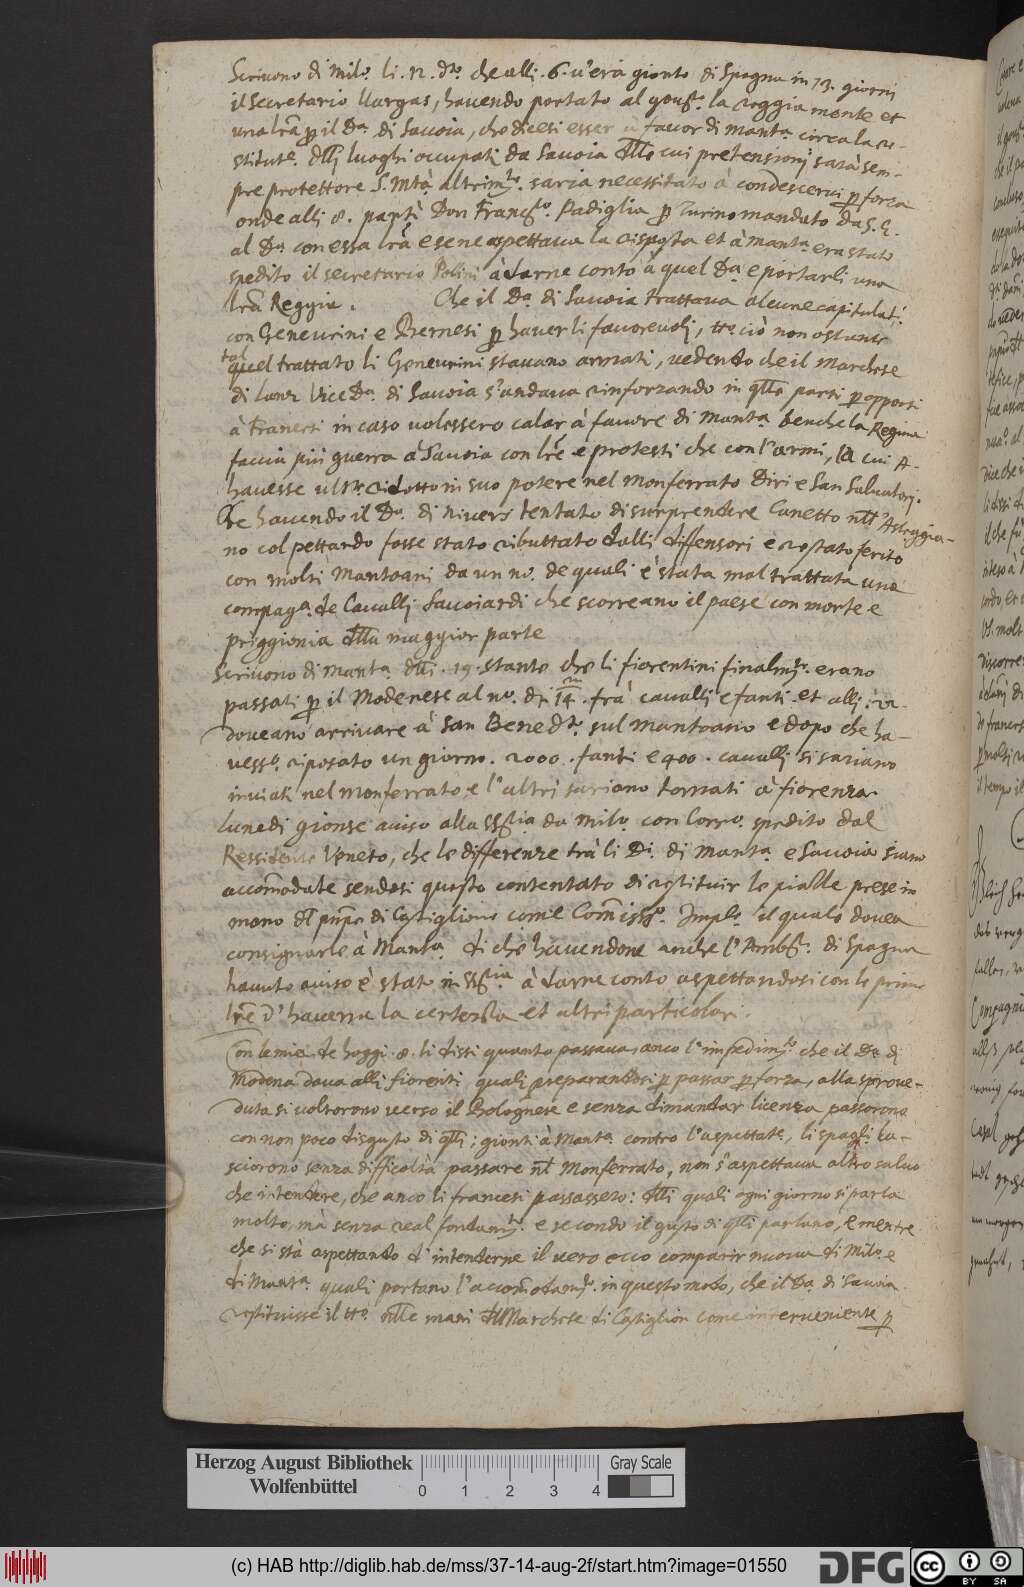 Scriuono di Milo. li .12. dto. che alli .6. v'era gionto di Spagna in 13. giorni
il secretario Vargas, hauendo portato al gour.e la reggia mente et
una lra p il Da. di Sauoia, che dicesi esser à fauor di manta. circa la re-
stitute. dlli luoghi occupati da Sauoia dlle cui pretensioni sarà sem-
pre protettore S. Mtà altrimte. saria necessitato à condescerui p forza
onde alli 8. partì Don Francso. Padiglia p Turino mandato da S. E.
al Da. con essa lra e sene aspettaua la risposta et à Manta. era stato
spedito il secretario Polini à darne conto à quel Da. e portarli una
lra Reggia. Che il Da. di Sauoia trattaua alcune capitulati.
con Geneurini e Bernesi p hauerli fauoreuoli, ma ciò non ostante
tal
quel trattato li Geneurini stauano armati, vedendo che il Marchese
di Lanz Vice Da. di Sauoia s'andaua rinforzando in qlle parti p opporsi
à Francesi in caso uolessero calar à fauore di Manta. benche la Regina
faccia più guerra à Sauoia con lre e protesti che con l'armi, la cui A.
hauesse ultte. ridotto in suo potere nel Monferrato Diri e San Saluatori.
Che hauendo il Da. di Niuers tentato di surprendere Canetto nll' Asteggia-
no col pettardo fosse stato ributtato dalli diffensori e restato ferito
con molti Mantoani da un no. de quali è stata mal trattata una
compaga. de Caualli Sauoiardi che scorreano il paese con morte e
priggionia dlla maggior parte
Scriuono di Manta. dlli .19. stante che li fiorentini finalmte. erano
passati p il Modenese al no. di 14 m. frà caualli e fanti et alli .22.
doueano arriuare à San Benedto. sul mantoano e dopo che ha-
uesso. riposato un giorno. 2000. fanti e 400. caualli si sariano
inuiati nel monferrato e l'altri sariano tornati à fiorenza.
Lunedi gionse auiso alla SSria da Milo. con Corro. spedito dal
Ressidente Veneto, che le differenze trà li Di. di Manta. e Sauoia siano
accomodate sendosi questo contentato di restituir le piazze prese in
mano dl pnpe di Castiglione come Comissro. Imple. il quale douea
consignarle à Manta. di che hauendone anche l'Ambr. di Spagna
hauuto auiso è stato in SSria à darne conto aspettandosi con le prime
lre d'hauerne la certezza et altri particolari.
Con le mie de hoggi .8. li dissi quanto passaua, anco l'impedimto. che il Da di
Modena daua alli fiorenti quali preparandosi p passar p forza, alla sproue-
duta si voltorono uerso il Bolognese e senza dimandar licenza passorono
con non poco disgusto di qlli; gionti à Manta. contro l'aspettate, li spagli. la-
sciorono senza difficoltà passare nl Monferrato, non s'aspettaua altro saluo
che intendere, che anco li francesi passassero: dlli quali ogni giorno si parla
molto, mà senza real fondamto. e secondo il gusto di qlli parlano, e mentre
che si stà aspettando d'intenderne il uero ecco comparir nuoua di Milo. e
di Manta. quali portano l'accomodamto. in questo modo, che il Da. di Sauoia
restituisse il tto. nlle mani dl Marchese di Castiglion come interueniente p
Herzog August Bibliothek
Wolfenbüttel
0 1 2 3 4
Gray Scale
(c) HAB http://diglib.hab.de/mss/37-14-aug-2f/start.htm?image=01550
DFG
cc BY SA